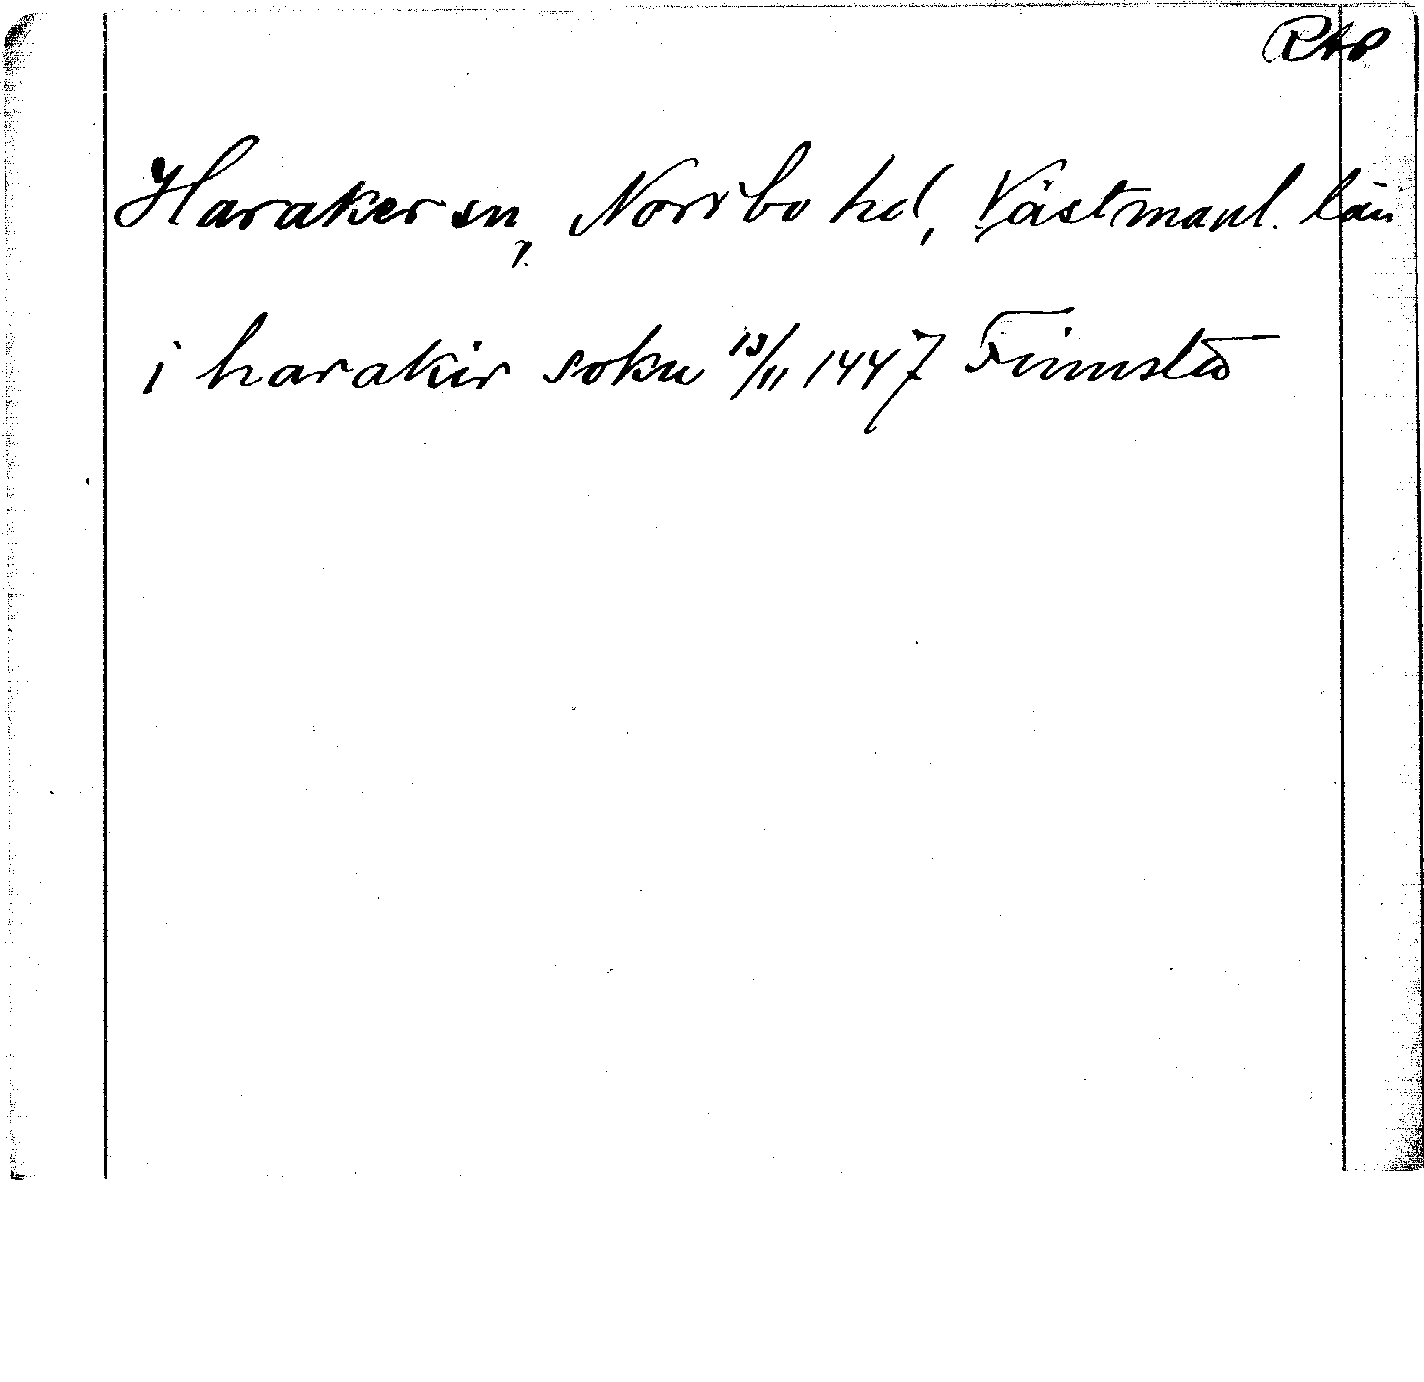 RAp
Haraker sn, Norrbo hd, Västmanl. län
i harakir sokn 13/11 1447 Finnstað